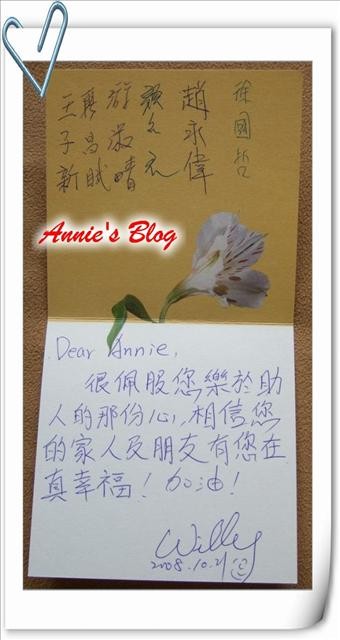 徐國哲
趙永偉
游淑晴
王子新
Annie's Blog
Dear Annie,
很佩服您樂於助
人的那份心,相信您
的家人及朋友有您在
真幸福!加油!
Willy
2008.10.21